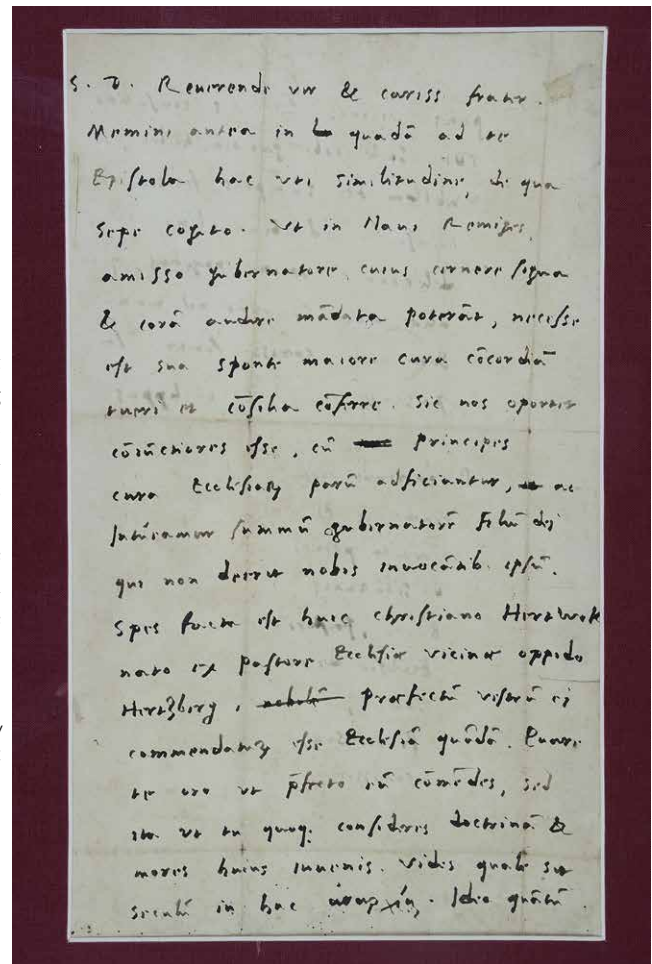 S. D. Reuerende vir & cariss frater.
Memini antea in quadā ad te
Epistola hac vti similitudine, de qua
sepe cogito. Vt in Naui Remiges,
amisso gubernatore, cuius cernere signa
& corā audire mādata poterāt, necesse
est sua sponte maiore cura cōcordiā
tueri et cōsilia cōferre. Sic nos oportet
cōiūctiores esse, cū principes
cura Ecclesiarꝫ parū adficiantur, ac
intueamur summū gubernatorē Filiū dei
qui non deerit nobis inuocātib. ipsū.
Spes facta est huic Christiano Hertwok
nato ex pastore Ecclesiae vicinae oppido
Hertzberg, praefectū vestrū ei
commendaturꝫ esse Ecclesiā quādā. Quare
te oro vt p̄fecto eū cōmēdes, sed
ita vt tu quoq. consideres doctrinā &
mores huius iuuenis. Vides quale sit
seculū in hac ἀναρχίᾳ. Ideo quātū